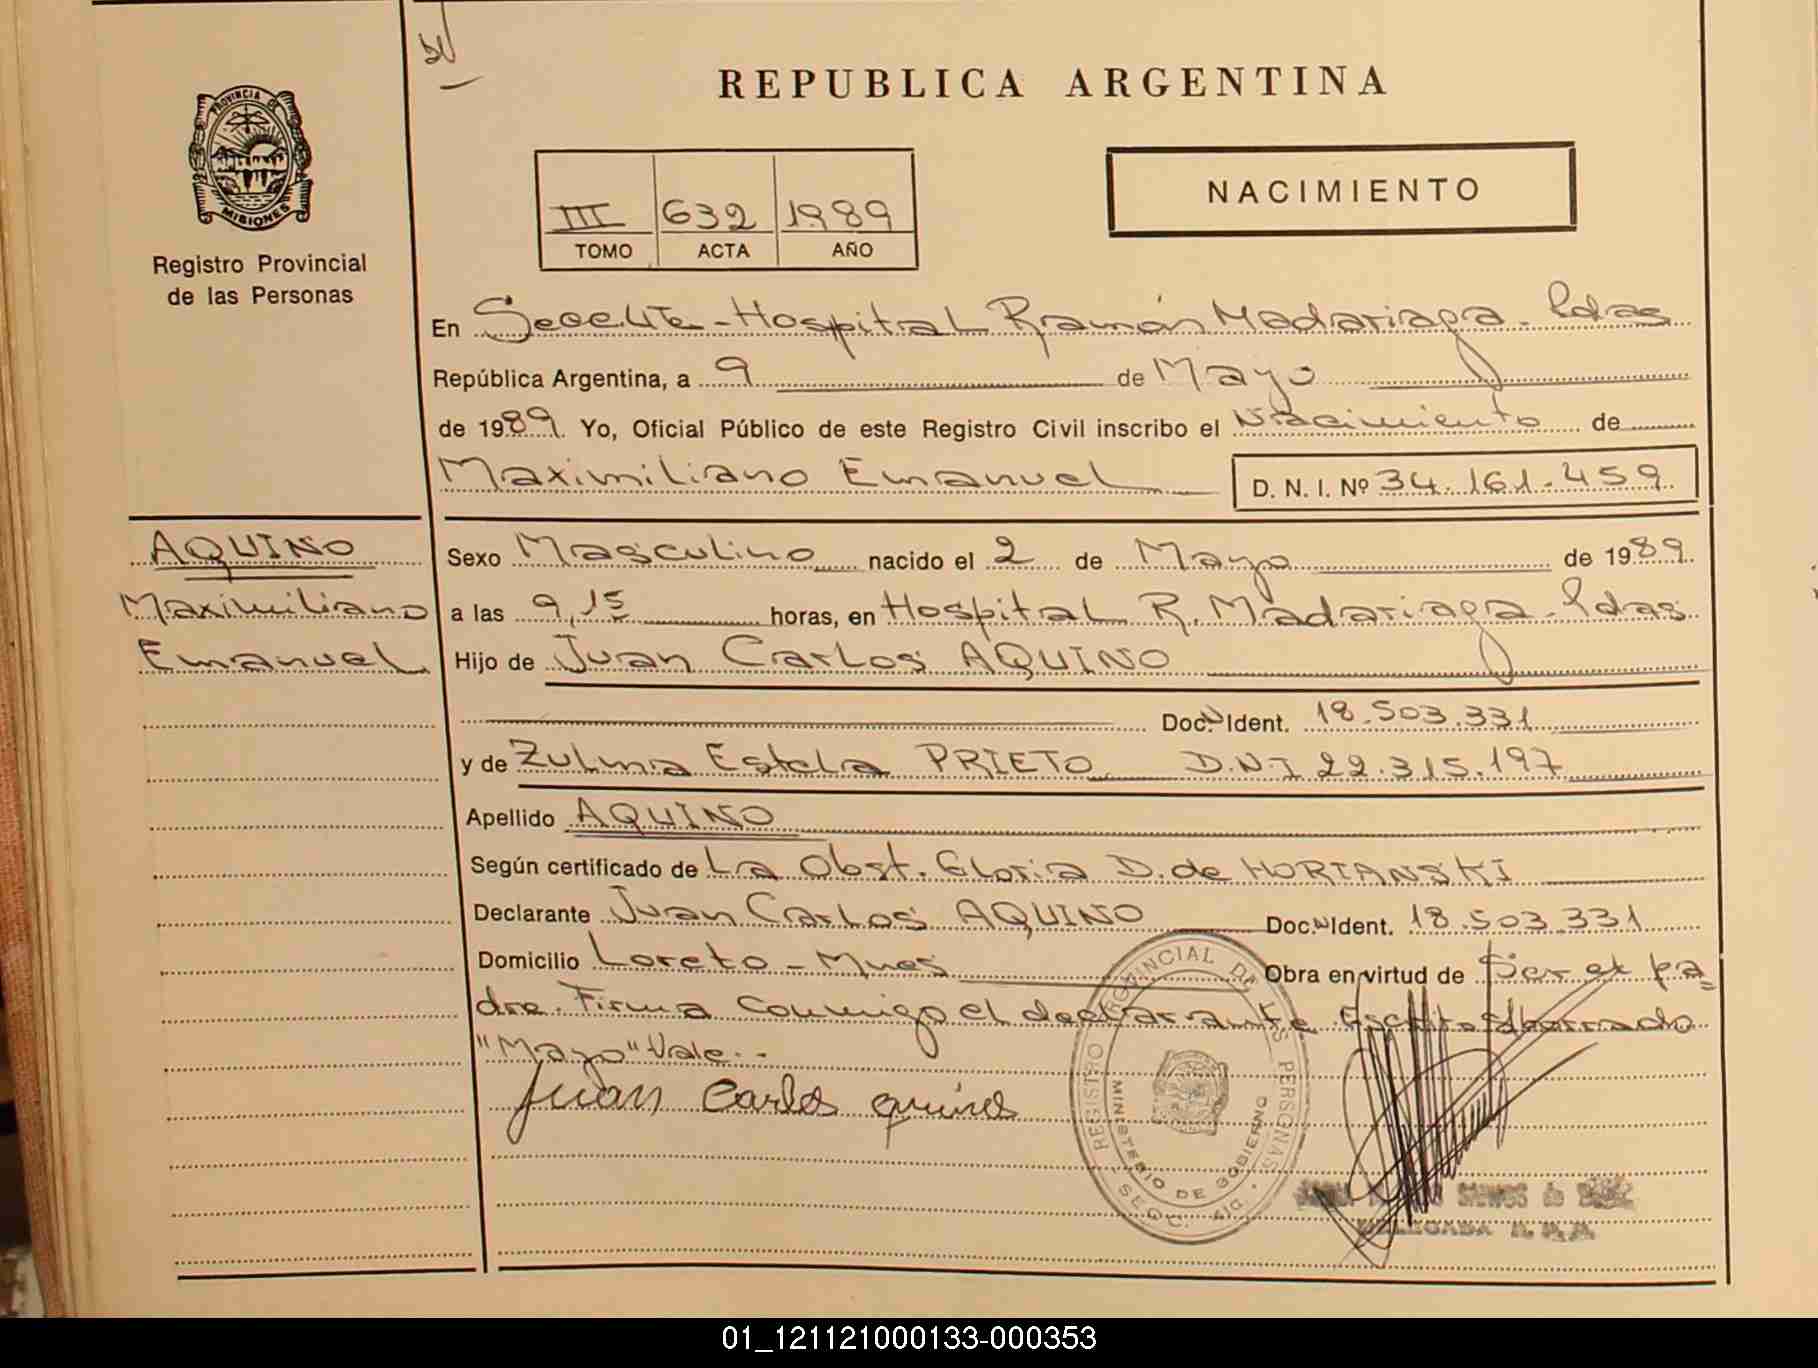 REPUBLICA ARGENTINA
PROVINCIA DE
MISIONES
Registro Provincial
de las Personas
III 632 1989
TOMO ACTA AÑO
NACIMIENTO
En Hospital Ramón Madariaga - Pdas
República Argentina, a 9 de Mayo
de 1989. Yo, Oficial Público de este Registro Civil inscribo el Nacimiento de
Maximiliano Emanuel D. N. I. Nº 34.161.459
AQUINO
Maximiliano
Emanuel
Sexo Masculino nacido el 2 de Mayo de 1989
a las 9,15 horas, en Hospital R. Madariaga - Pdas
Hijo de Juan Carlos AQUINO
Doc. Ident. 18.503.331
y de Zulma Estela PRIETO D.N.I 22.315.197
Apellido AQUINO
Según certificado de La Obst. Gloria D. de HORIANSKI
Declarante Juan Carlos AQUINO Doc. Ident. 18.503.331
Domicilio Loreto - Mnes Obra en virtud de Ser el pa=
dre. Firma conmigo el declarante. Escrito s/borrado
"Mayo" Vale.-
Juan Carlos
REGISTRO PROVINCIAL DE LAS PERSONAS
MINISTERIO DE GOBIERNO
DELEGADA
01_121121000133-000353